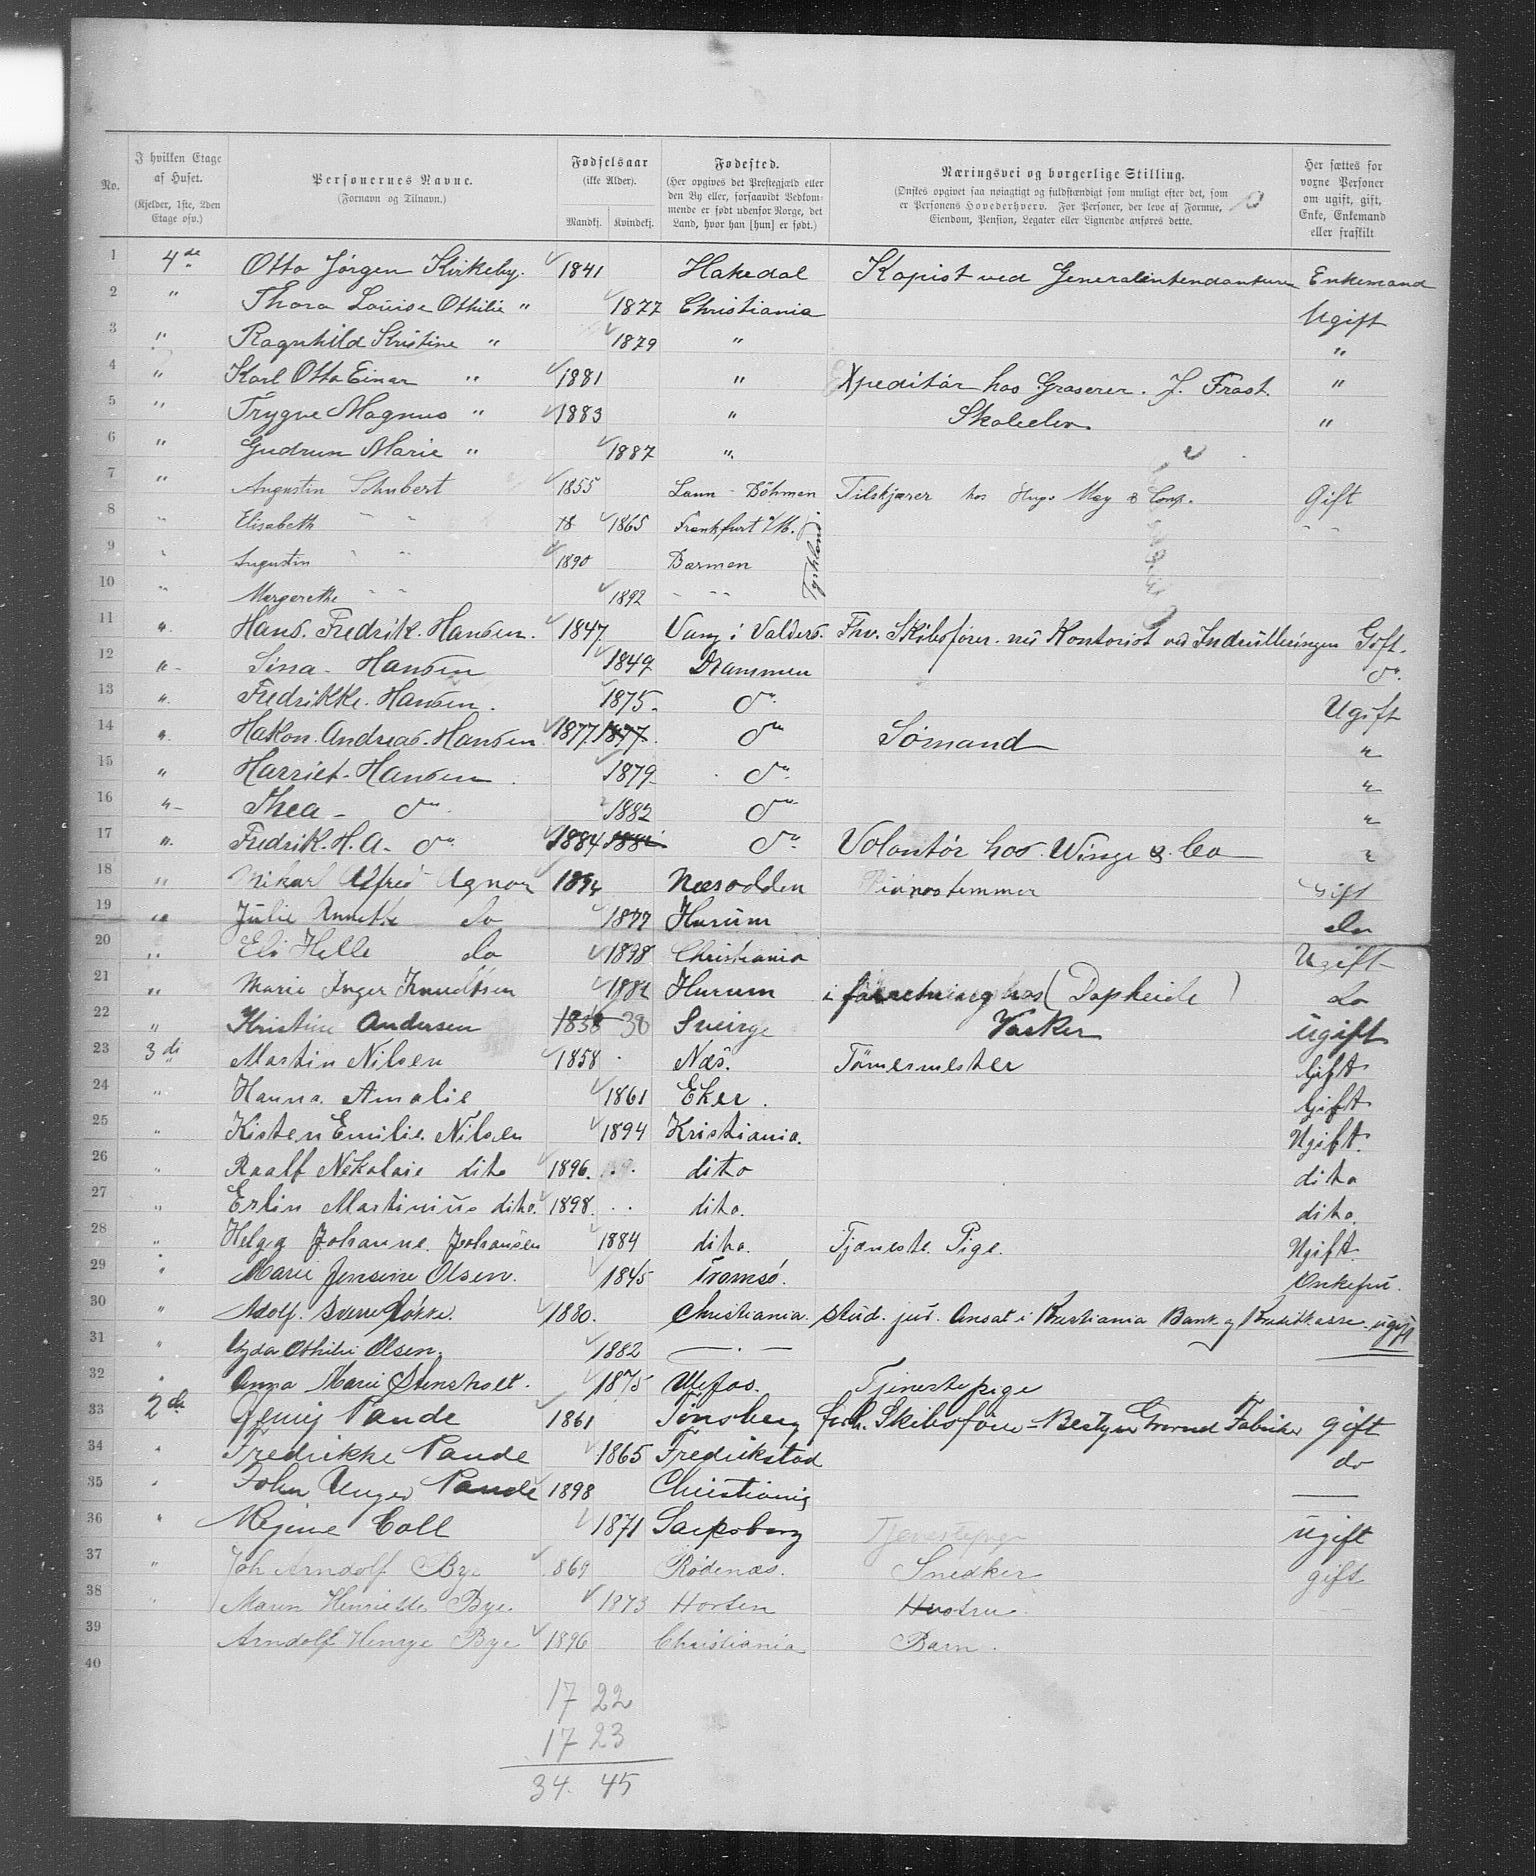 No. I hvilken Etage af Huset. (Kjelder, 1ste, 2den Etage osv.) Personernes Navne. (Fornavn og Tilnavn.) Fødselsaar (ikke Alder). Mandkj. Kvindekj. Fødested. (Her opgives det Prestegjæld eller den By eller, forsaavidt Vedkommende er født udenfor Norge, det Land, hvor han [hun] er født.) Næringsvei og borgerlige Stilling. (Ønskes opgivet saa nøiagtigt og fuldstændigt som muligt efter det, som er Personens Hovederhverv. For Personer, der leve af Formue, Eiendom, Pension, Legater eller Lignende anføres dette. Her sættes for voxne Personer om ugift, gift, Enke, Enkemand eller fraskilt
1 4de Otto Jørgen Kirkeby. 1841 Hakedal Kopist ved Generalintendanturen Enkemand
2 " Thora Louise Othilie " 1877 Christiania Ugift
3 " Ragnhild Kristine " 1879 " "
4 " Karl Otto Einar " 1881 " Xpeditør hos Grosserer. J. Frost. "
5 " Trygve Magnus " 1883 " Skoleelev "
6 " Gudrun Marie " 1887 "
7 " Augustin Schubert 1855 Laun - Böhmen Tilskjærer hos Hugo May & Comp. Gift
8 " Elisabeth " " 18 1865 Frankfurt a/M. Tyskland " "
9 " Augustin " " 1890 Barmen
10 " Margarethe " " 1892 " "
11 " Hans. Fredrik. Hansen. 1847 Vang i Valders. Fhv. Skibsfører. nu Kontorist ved Indrulleringen Gift.
12 " Sina - Hansen 1849 Drammen do.
13 " Fredrikke. Hansen. 1875. do Ugift
14 " Hakon. Andreas. Hansen 1877. 1877. do Sømand "
15 " Harriet. Hansen 1879 do "
16 " Thea - do 1882 do "
17 " Fredrik. H. A. do 1884 do Volontør hos. Winge & Co "
18 " Mikael Alfred Agnor Næsodden Pianostemmer Gift
19 " Julie Annette do 1877 Hurum do
20 " Eli Helle do 1898 Christiania Ugift
21 " Marie Inger Knudtsen 1882 Hurum i forretning hos (Dapheide) do
22 " Kristine Andersen 38 Sverige Vasker ugift
23 3di Martin Nilsen 1858 Næs. Tømesmester Gift
24 " Hanna Amalie 1861 Eker. Gift
25 " Kisten Emilie. Nilsen 1894 Kristiania. Ugift.
26 " Raalf Nekolaie dito 1896. dito dito
27 " Erlin Martinius dito. 1898. dito. dito.
28 " Helga Johanne. Johansen 1884 dito. Tjæneste. Pige. Ugift.
29 " Marie Jensine Olsen. 1845 Tromsö. Enkefru.
30 " Adolf. Sverre Løkke. 1880. Christiania. stud. jur. Ansat i Kristiania Bank og Kreditkasse ugift
31 " Othilie Olsen. 1882 — . —
32 " Anna Marie Stensholt. 1875 Ulefos. Tjenestepige
33 2de Paude 1861 Tønsberg forh. Skibsfører - Bestyrer Fabriker gift
34 " Fredrikke Paude 1865 Fredrikstad do
35 " John Unger Paude 1898 Christiania
36 " Regine Coll 1871 Sarpsborg Tjenestepige ugift
37 " Joh Arndolf Bye 869 Rødenæs. Snedker gift
38 " Maren Henriette Bye. 1873 Horten Hustru.
39 Arndolf Henrye Bye 1896 Christiania Barn.
40
17 22
17 23
34. 45